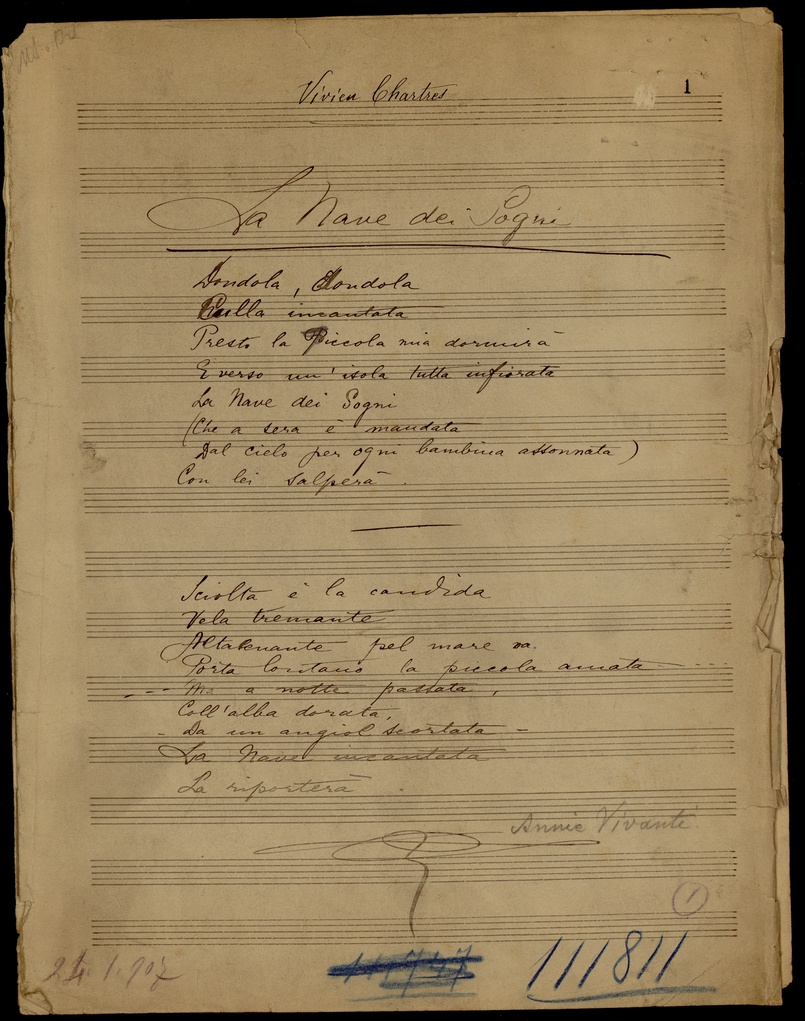 Vivien Chartres
1
La Nave dei Sogni
Dondola, dondola
Culla incantata
Presto la Piccola mia dormirà
E verso un'isola tutta infiorata
La Nave dei Sogni
(Che a sera è mandata
Dal cielo per ogni bambina assonnata)
Con lei salperà.
Sciolta è la candida
Vela tremante
Altalenante pel mare va.
Porta lontano la piccola amata ....
... Ma a notte passata,
Coll'alba dorata,
- Da un angiol scortata -
La Nave incantata
La riporterà.
Annie Vivanti
1
24.1.907
111811